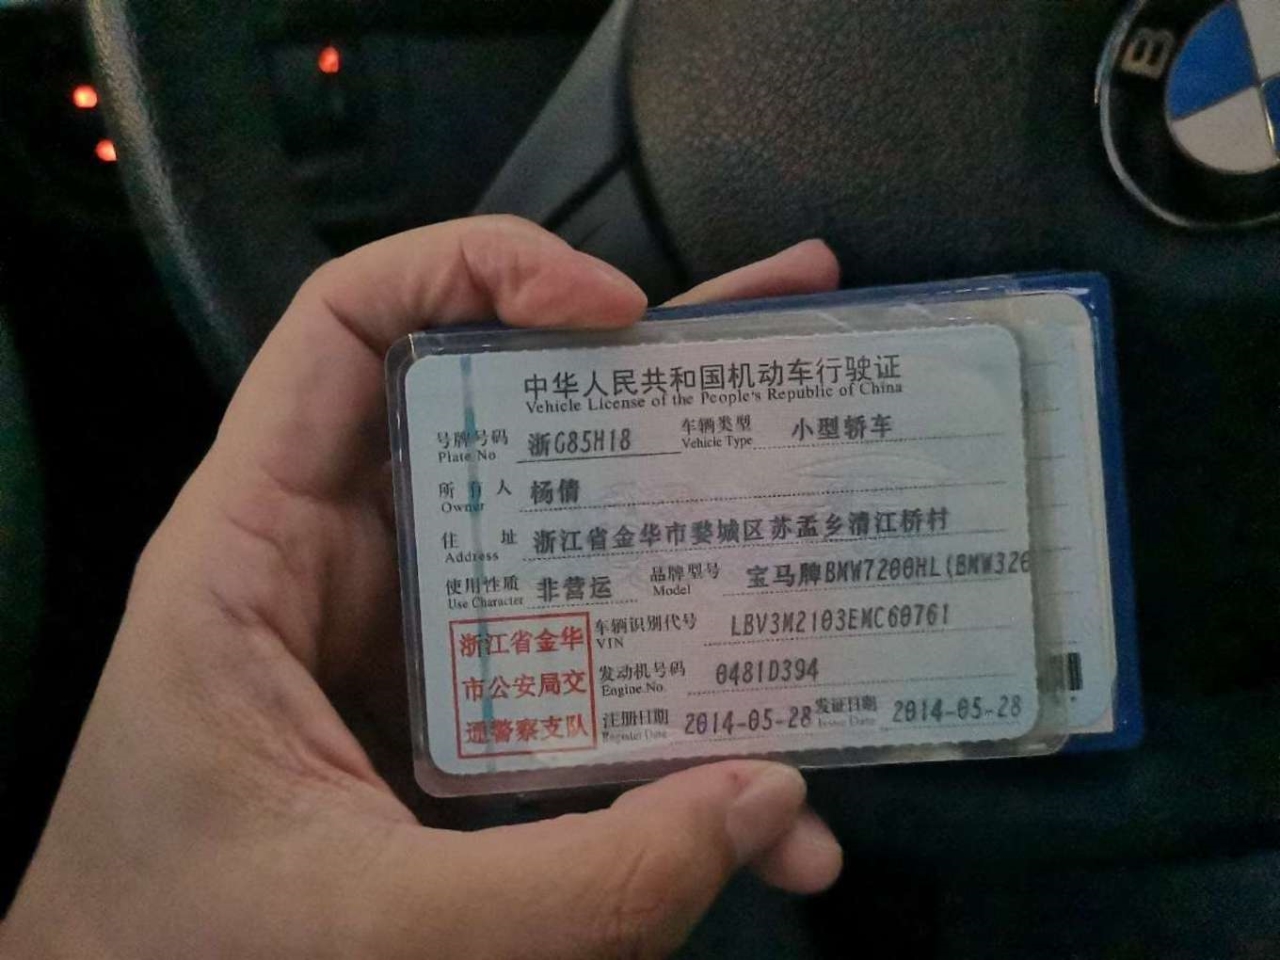 B
中华人民共和国机动车行驶证
Vehicle License of the People's Republic of China
号牌号码 浙G85H18 车辆类型 小型轿车
Plate No Vehicle Type
所有人 杨倩
Owner
住址 浙江省金华市婺城区苏孟乡清江桥村
Address
使用性质 非营运 品牌型号 宝马牌BMW7200HL(BMW320
Use Character Model
浙江省金华
市公安局交
通警察支队
车辆识别代号 LBV3M2103EMC60761
VIN
发动机号码 0481D394
Engine No.
注册日期 2014-05-28 发证日期 2014-05-28
Register Date Issue Date